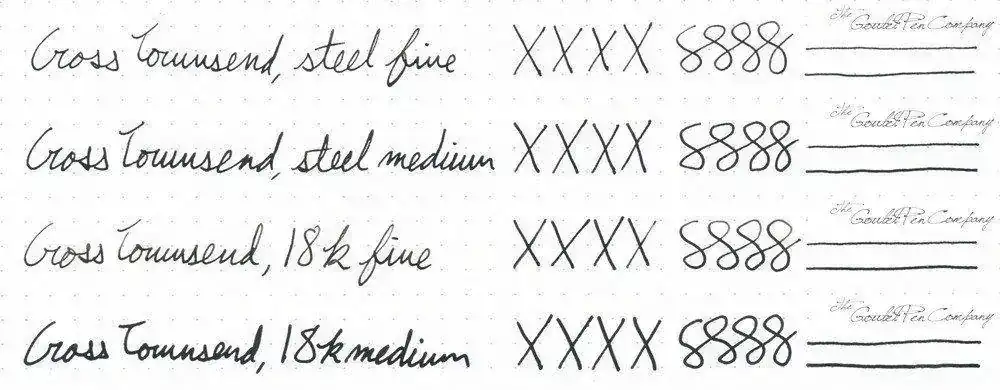 Cross Townsend, steel fine XXXX 8888 The Goulet Pen Company
Cross Townsend, steel medium XXXX 8888 The Goulet Pen Company
Cross Townsend, 18k fine XXXX 8888 The Goulet Pen Company
Cross Townsend, 18k medium XXXX 8888 The Goulet Pen Company